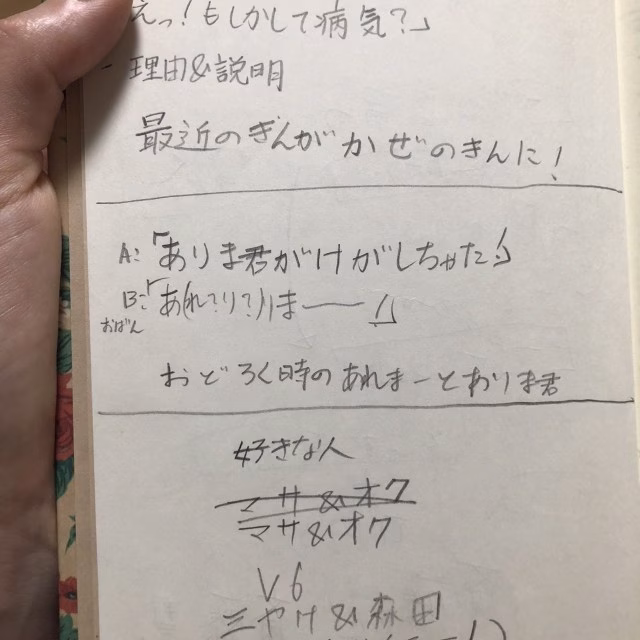 えっ！もしかして病気？」
理由&説明
最近のぎんが かぜのきんに！
A:「ありま君がけがしちゃた！」
B:「あ(れ？り？)ま――！」
おばん
おどろく時のあれまーとありま君
好きな人
マサ&オク
マサ&オク
V6
三ヤケ&森田